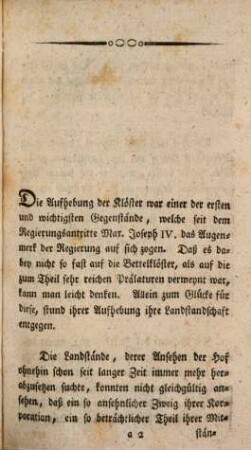 Die Aufhebung der Klöster war einer der ersten
und wichtigsten Gegenstände, welche seit dem
Regierungsantritte Mar. Joseph IV. das Augen-
merk der Regierung auf sich zogen. Daß es da-
bey nicht so fast auf die Bettelklöster, als auf die
zum Theil sehr reichen Prälaturen vermeynt war,
kann man leicht denken. Allein zum Glücke für
diese, stund ihrer Aufhebung ihre Landstandschaft
entgegen.
Die Landstände, derer Ansehen der Hof
ohnehin schon seit langer Zeit immer mehr her-
abzusetzen suchte, konnten nicht gleichgültig an-
sehen, daß ein so ansehnlicher Zweig ihrer Kor-
poration, ein so beträchtlicher Theil ihrer Mit-
a 2 stän-